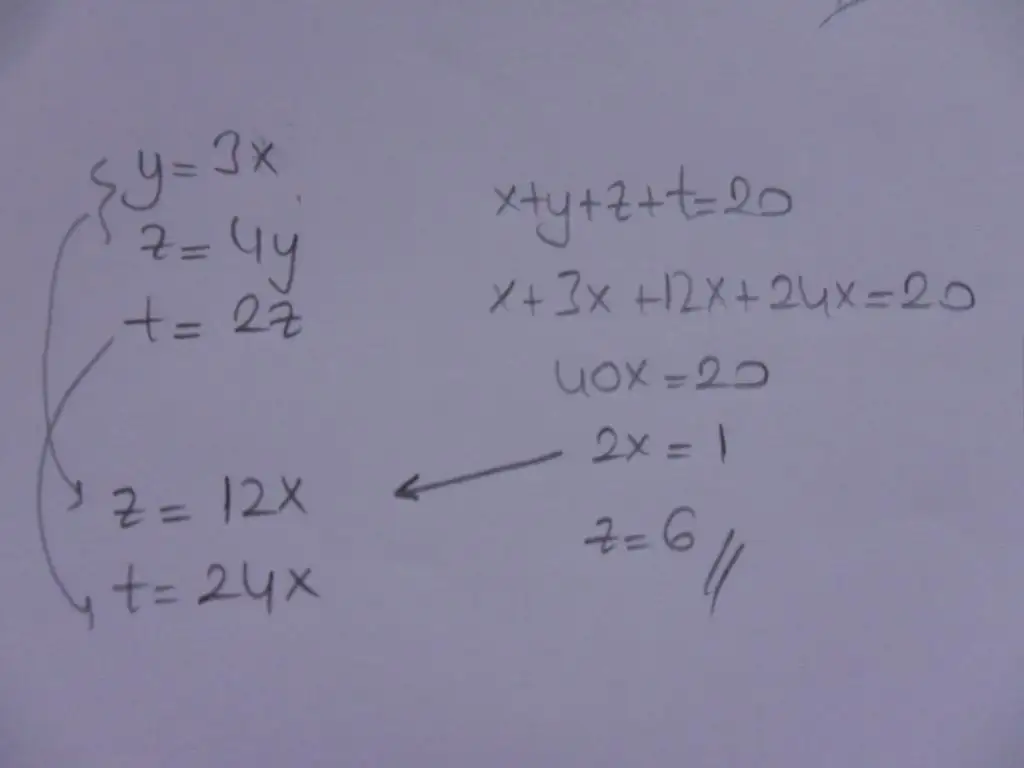 y = 3x
z = 4y
t = 2z
z = 12x
t = 24x
x+y+z+t=20
x+3x+12x+24x=20
40x=20
2x = 1
z=6//